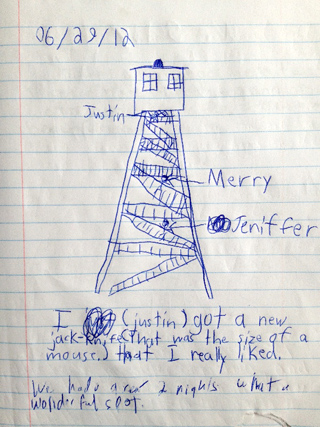 06/29/12
Justin
Merry
Jeniffer
I (justin) got a new
jack-knife (that was the size of a
mouse.) that I really liked.
We had a 2 nights what a
wonderful spot.